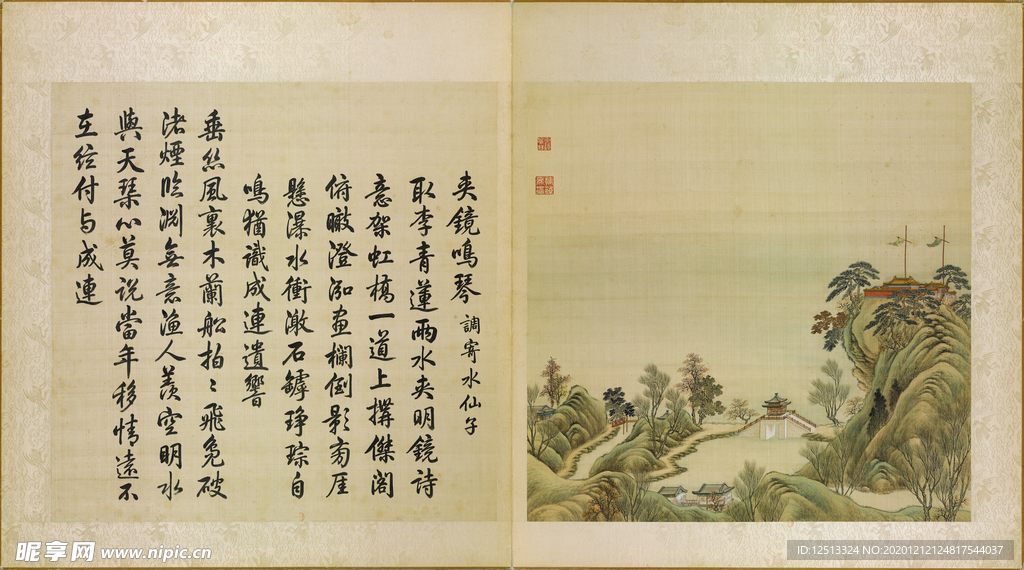 夾鏡鳴琴 調寄水仙子
取李青蓮兩水夾明鏡詩
意架虹橋一道上搆傑閣
俯瞰澄泓畫欄倒影旁厓
懸瀑水衝激石罅琤琮自
鳴猶識成連遺響
垂絲風裏木蘭船拍〻飛鳧破
渚煙臨淵無意漁人羨空明水
與天琹心莫說當年移情遠不
在絃付与成連
昵享网 www.nipic.cn
ID:12513324 NO:20201212124817544037